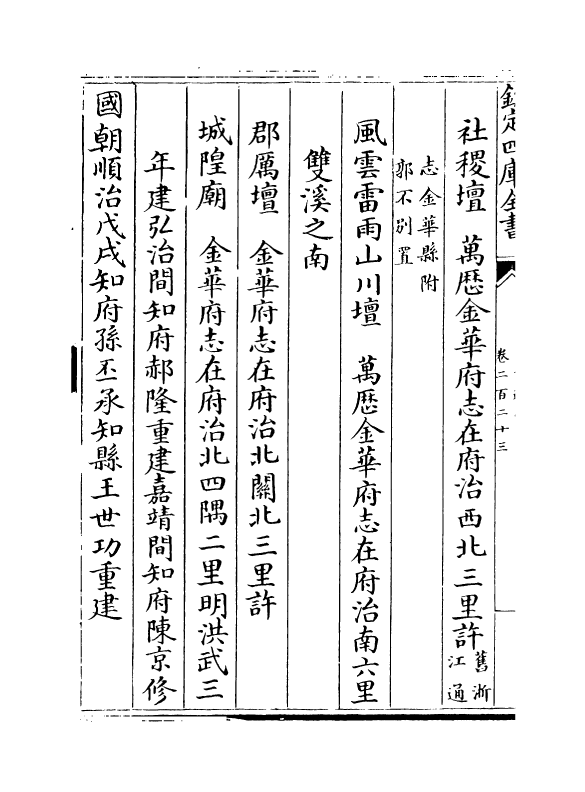 欽定四庫全書
卷二百二十三
社稷壇　萬歷金華府志在府治西北三里許舊浙江通
志金華縣附郭不别置
風雲雷雨山川壇　萬歷金華府志在府治南六里
雙溪之南
郡厲壇　金華府志在府治北關北三里許
城隍廟　金華府志在府治北四隅二里明洪武三
年建弘治間知府郝隆重建嘉靖間知府陳京修
國朝順治戊戌知府孫丕承知縣王世功重建